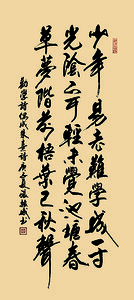 少年易老難學成一寸
光陰不可輕未覺池塘春
草夢階前梧葉已秋聲
勸學詩偶成朱熹詩